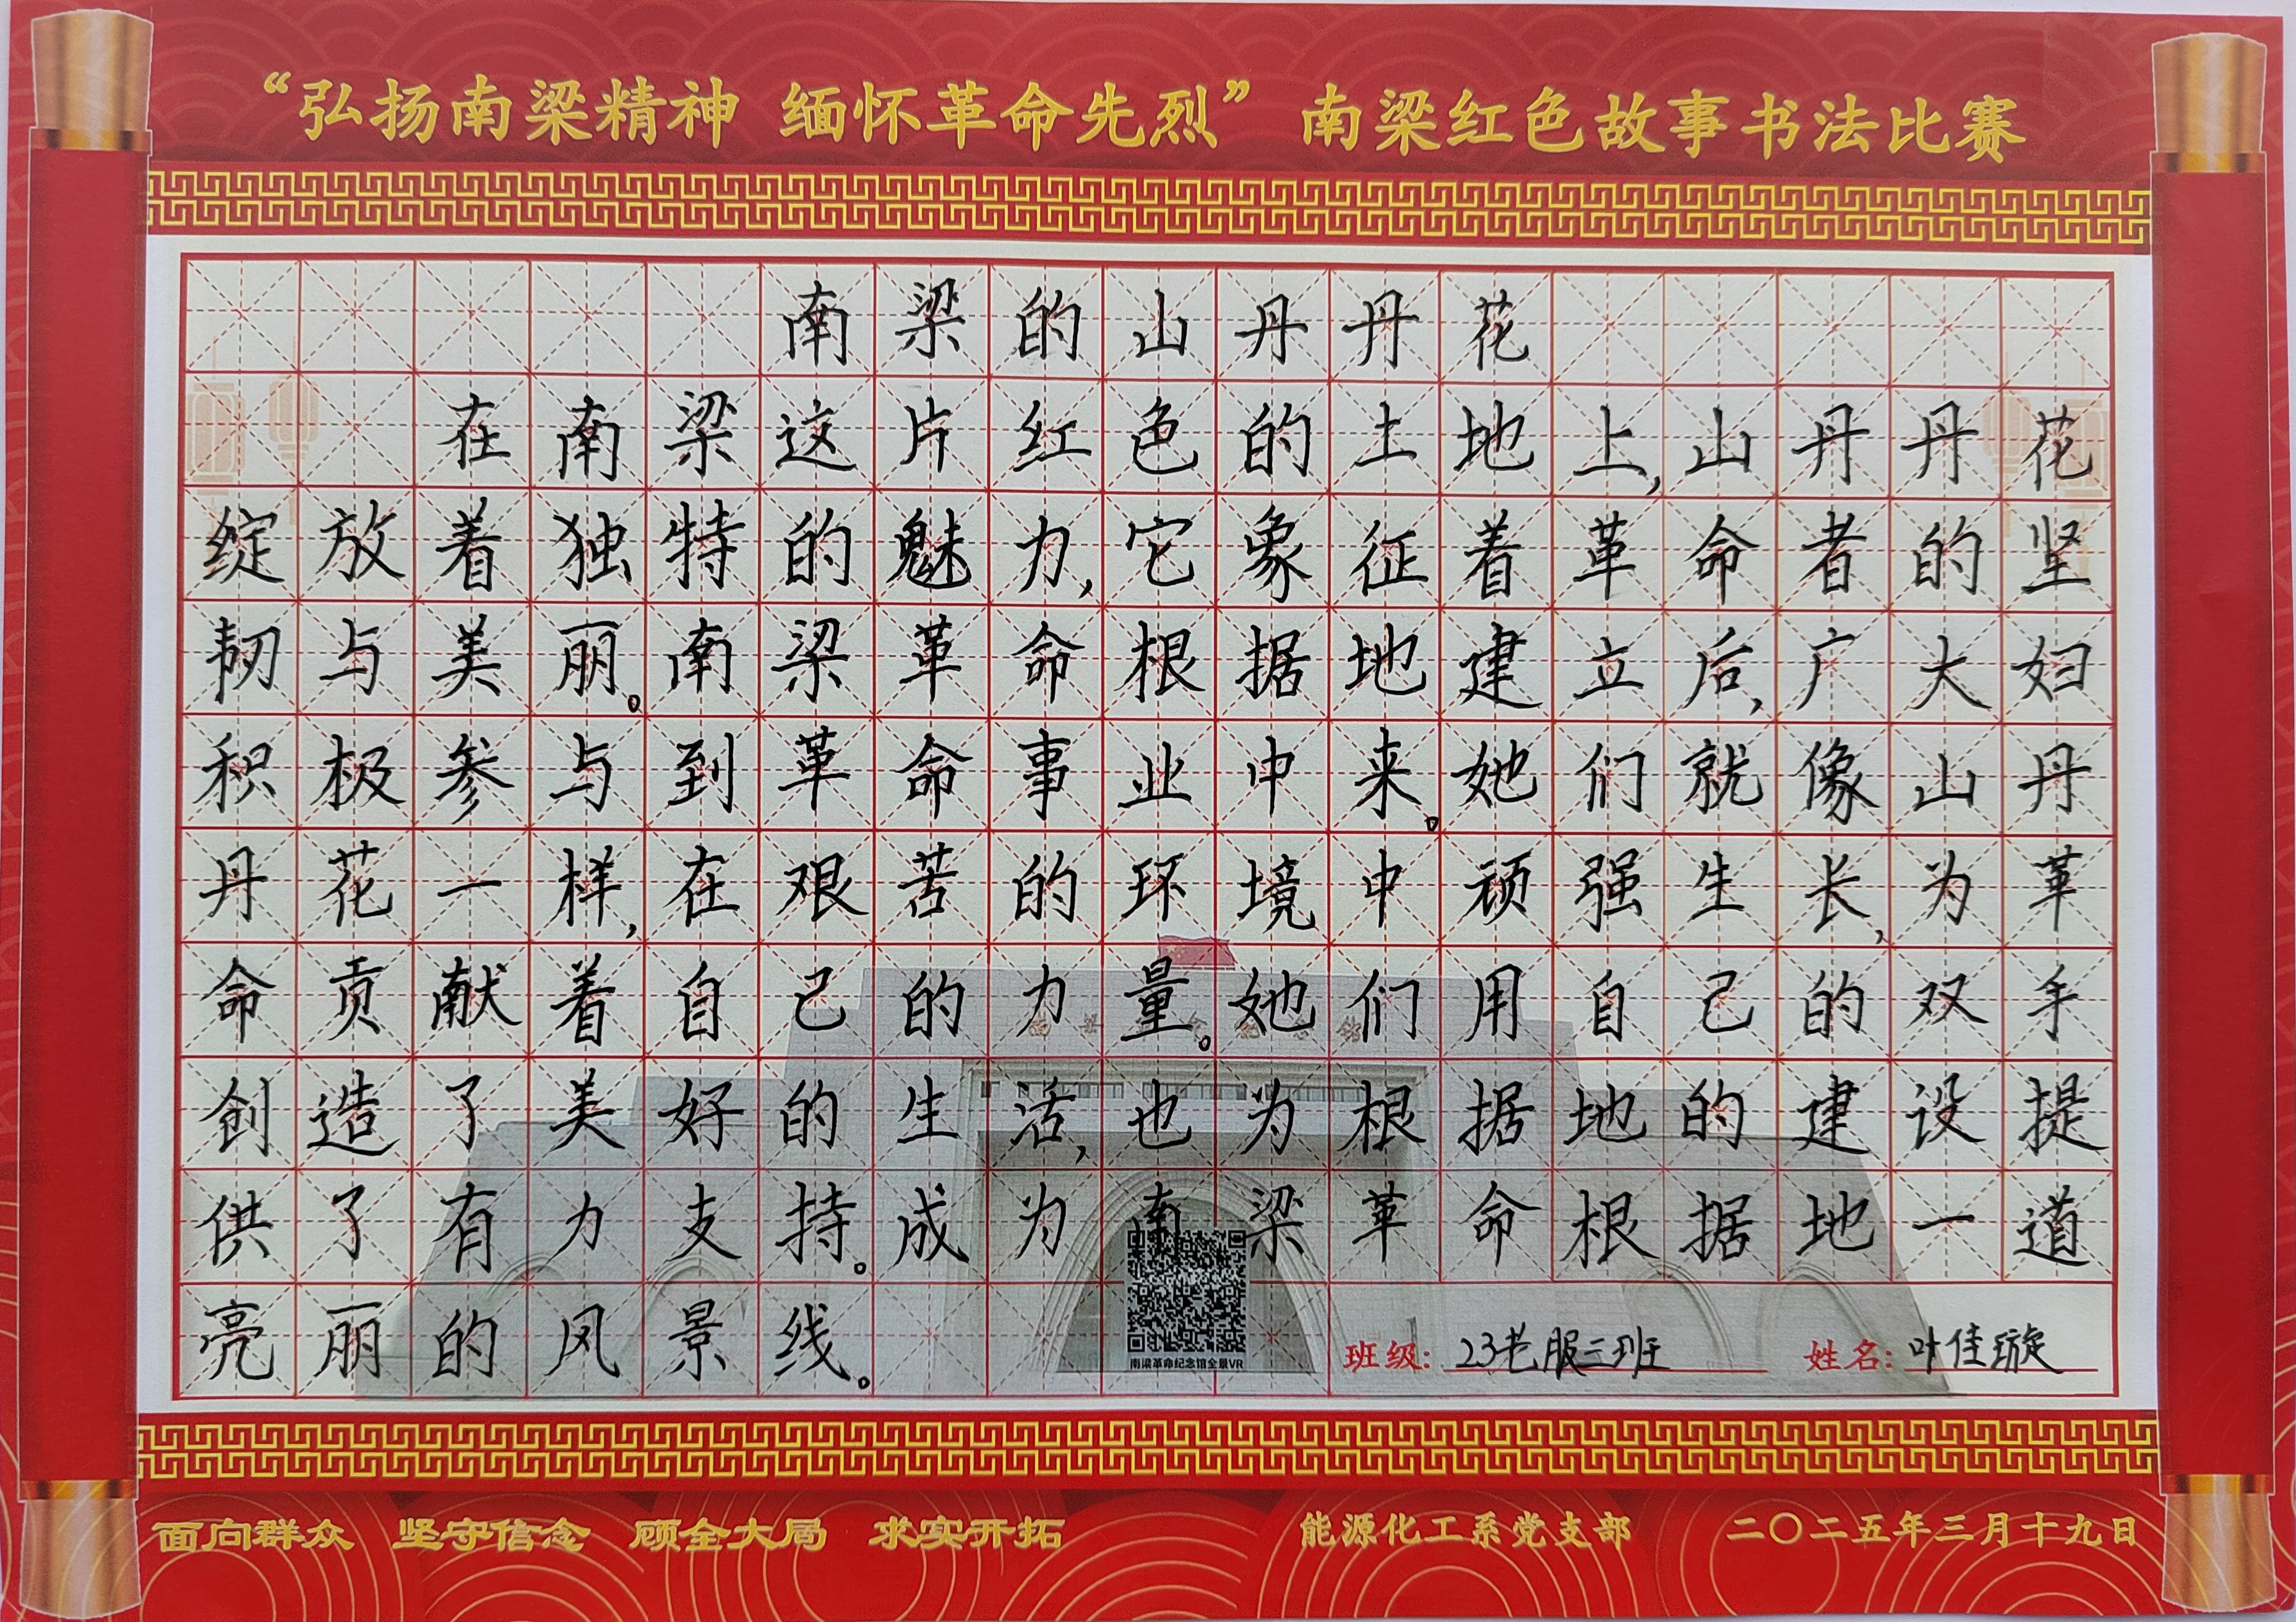 “弘扬南梁精神 缅怀革命先烈” 南梁红色故事书法比赛
南梁的山丹丹花
在南梁这片红色的土地上,山丹丹花
绽放着独特的魅力,它象征着革命者的坚
韧与美丽。南梁革命根据地建立后,广大妇
积极参与到革命事业中来。她们就像山丹
丹花一样,在艰苦的环境中顽强生长,为革
命贡献着自己的力量。她们用自己的双手
创造了美好的生活,也为根据地的建设提
供了有力支持。成为南梁革命根据地一道
亮丽的风景线。
南梁革命纪念馆全景VR
班级: 23老服三班 姓名: 叶佳璇
面向群众 坚守信念 顾全大局 求实开拓 能源化工系党支部 二〇二五年三月十九日